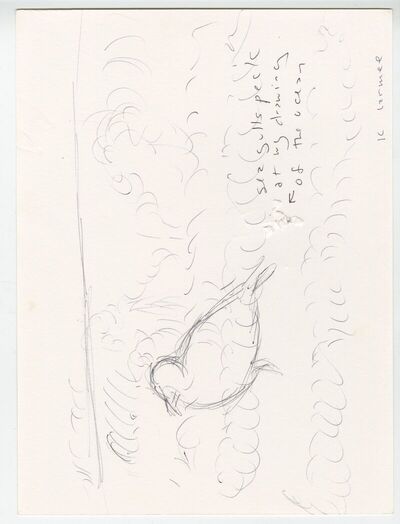 sea gulls peck
at my drawing
of the ocean